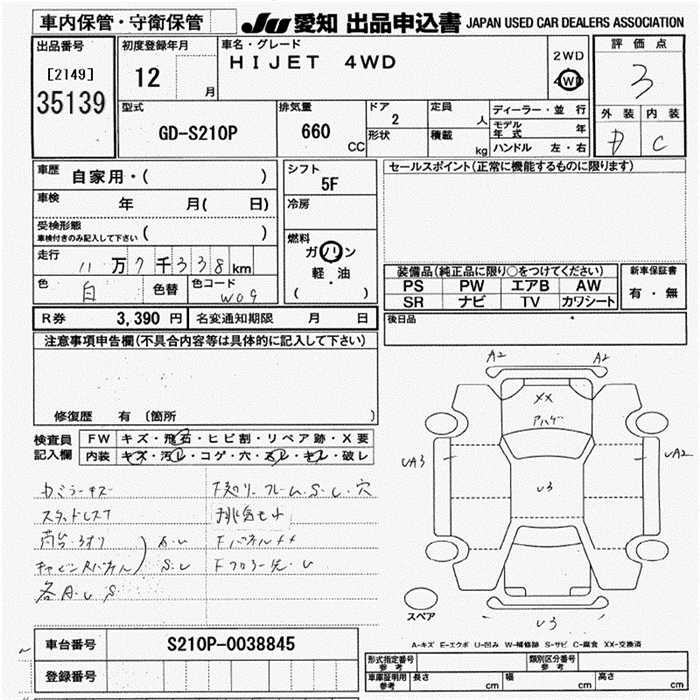 車内保管・守衛保管
JU 愛知 出品申込書 JAPAN USED CAR DEALERS ASSOCIATION
出品番号
[2149]
35139
初度登録年月
12 月
車名・グレード
HIJET 4WD
2WD
4WD
評価点
3
外装 内装
D C
型式
GD-S210P
排気量
660 CC
ドア
2
形状
定員
人
積載
kg
ディーラー・並行
モデル年式 年
ハンドル 左・右
車歴 自家用・( )
車検 年 月( 日)
受検形態
車検付きのみ記入して下さい ( )
走行
11万7千338km
色 白 色替 色コード W09
シフト
5F
冷房
燃料
ガソリン
・
軽・油
( )
セールスポイント(正常に機能するものに限ります)
装備品(純正品に限り○をつけてください)
PS PW エアB AW
SR ナビ TV カワシート
新車保証書
有・無
後日品
R券 3,390 円 名変通知期限 月 日
注意事項申告欄(不具合内容等は具体的に記入して下さい)
修復歴 有 〔箇所 〕
検査員
記入欄
FW キズ・飛石・ヒビ割・リペア跡・X要
内装 キズ・汚レ・コゲ・穴・スレ・キレ・破レ
カミラーキズ
スタッドレス7
A・U
S・U
各A・U S
下廻り・フレームS・U・穴
A2 A2
XX
アハゲ
UA3 U3 UA2
U3
スペア
A-キズ E-エクボ U-凹み W-補修跡 S-サビ C-腐食 XX-交換済
車台番号 S210P-0038845
登録番号
形式指定番号 参考
類別区分番号 参考
車庫証明用 参考 長さ cm 幅 cm 高さ cm